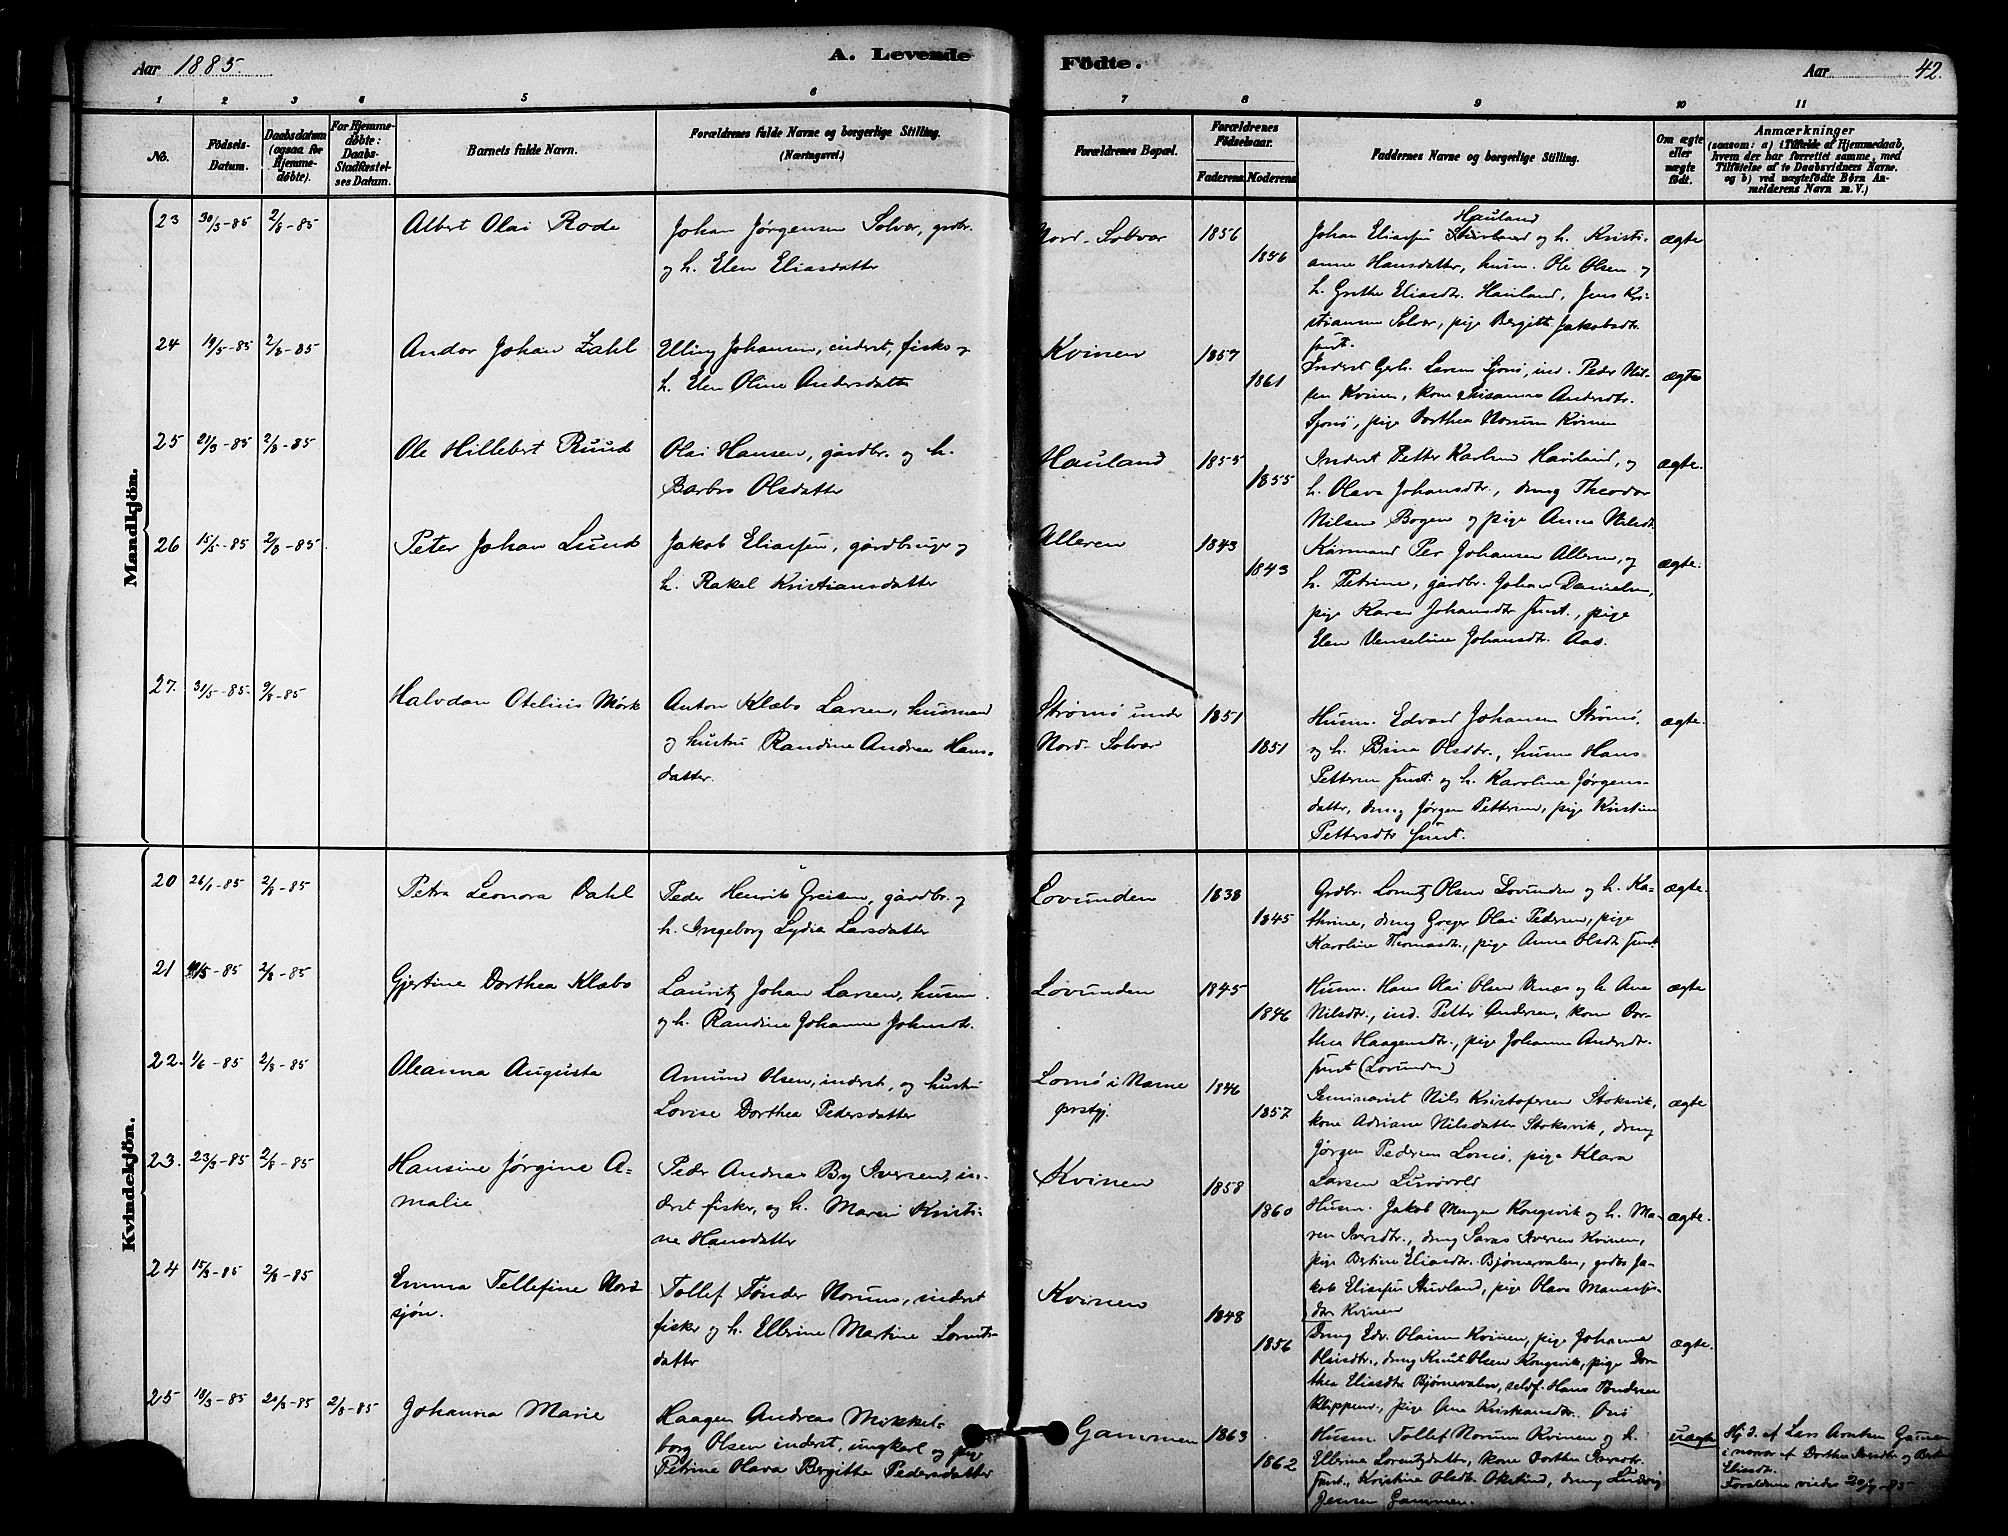 Aar 1885.
A. Levende Födte.
Aar
42.
1 2 3 4 5 6 7 8 9 10 11
No.
Födsels-Datum.
Daabsdatum (ogsaa for Hjemme-döbte).
For Hjemme-döbte: Daabs-Stadfæstel-ses Datum.
Barnets fulde Navn.
Forældrenes fulde Navne og borgerlige Stilling.
(Næringsvei.)
Forældrenes Bopæl.
Forældrenes Födselsaar.
Faderens Moderens
Faddernes Navne og borgerlige Stilling.
Om ægte eller uægte födt.
Anmærkninger
(saasom: a) i Tilfælde af Hjemmedaab,
hvem der har forrettet samme, med
Tilföielse af to Daabsvidners Navne,
og b) ved uægtefödte Börn An-
melderens Navn m. V.)
Mandkjön.
23 30/3-85 2/8-85 Albert Olai Rode
Johan Jørgensen Solvær, grdbr.
og h. Elen Eliasdatter
Nord-Solvær 1856 1846
Hauland
Johan Eliassen og h. Kristi-
anne Hansdatter, husm. Ole Olsen og
h. Grethe Eliasdtr. Hauland, Jens Kri-
stiansen Solvær, pige Bergitte Jakobsdtr.
smst.
ægte
24 19/5-85 2/8-85 Andor Johan Zahl
Elling Johansen, inderst, fisker og
h. Elen Oline Andersdatter
Kvinen 1857 1861
Inderst Gerh. Larsen Sjonø, ind. Peder Nil-
sen Kvinen, kone Susanna Andersdtr.
Sjonø, pige Dorthea Norum Kvinen
ægte
25 21/3-85 2/8-85 Ole Hillebert Ruud
Olai Hansen, gårdbr. og h.
Barbro Olsdatter
Hauland 1855 1855
Inderst Petter Karlsen Hauland, og
h. Olava Johansdtr., dreng Theodor
Nilsen Bogen og pige Anne Nilsdtr.
ægte.
26 15/5-85 2/8-85 Peter Johan Lund
Jakob Eliassen, gårdbruger og
h. Rakel Kristiansdatter
Alleren 1843 1843
Kårmand Per Johansen Alleren, og
h. Petrine, gårdbr. Johan Danielsen,
pige Karen Johansdtr smst., pige
Elen Venseline Johansdtr. Aas
ægte.
27. 31/5-85. 9/8-85 Halvdan Otelius Mørk
Anton Klæbo Larsen, husmand
og hustru Randine Andrea Hans-
datter.
Strømø under
Nord-Solvær
1851 1851
Husm. Edvard Johansen Strømø,
og h. Bina Olsdtr., husm Hans
Pettersen smst. og h. Karoline Jørgens-
datter, dreng Jørgen Pettersen, pige Kristine
Pettersdtr smst.
ægte.
Kvindekjön.
20 26/1-85 2/8-85 Petra Leonora Dahl
Peder Henrik Greisen, gårdbr. og
h. Ingeborg Lydia Larsdatter
Lovunden 1838 1845
Grdbr. Lorntz Olsen Lovunden og h. Ka-
thrine, dreng Greger Olai Pedersen, pige
Karoline Thomasdtr., pige Anna Olsdtr smst
ægte.
21 -85 2/8-85 Gjertine Dorthea Klæbo
Lauritz Johan Larsen, husm.
og h. Randine Johanne Johnsdtr.
Lovunden 1845 1846
Husm. Hans Olai Olsen Unæs og h. Ane
Nilsdtr., ind. Petter Andersen, kone Dor-
thea Haagensdtr., pige Johanna Andersdtr.
smst (Lovunden)
ægte
22. 1/6-85 2/8-85 Oleanna Augusta
Amund Olsen, inderst, og hustru
Lovise Dorthea Pedersdatter
Lomø i Næsne
prstgj.
1846 1857
Seminarist Nils Kristofersen Stoksvik,
kone Adriane Nilsdatter Stoksvik, dreng
Jørgen Pedersen Lomø, pige Klara
Larsen Lurøvold
ægte
23. 23/3-85 2/8-85 Hansine Jørgine A-
malie
Peder Andreas By Iversen, in-
derst fisker, og h. Maren Kristi-
ne Hansdatter
Kvinen 1858 1860
Husm. Jakob Kongsvik og h. Ma-
ren Iversdtr., dreng Iversen Kvinen,
pige Bertine Eliasdtr. Bjørnevalen, grdbr Ja-
kob Eliassen, pige Olava
dtr. Kvinen
ægte.
24 15/3-85 2/8-85 Emma Tellefine Nord
sjön.
Tollef Tønder Norum, inderst
fisker og h. Ellerine Martine Lornts-
datter
Kvinen 1848 1856
Dreng Edv. Olaisen Kvinen, pige Johanna
Olaisdtr., dreng Knut Olsen Kongsvik, pige Dor-
thea Eliasdtr Bjørnevalen, selvf. Hans Andersen
Klippen, pige Ane Kristiansdtr.
ægte.
25 18/3-85 20/3-85 2/8-85 Johanna Marie
Haagen Andreas Mikkel-
borg Olsen inderst, ungkarl og pige
Petrine Olava Bergitte Pedersdatter
Gammen 1863 1862
Husm. Tollef Norum Kvinen og h.
Ellerine Lorntzdatter, kone Dorthea Iversdtr.
smst., Kristine Olsdtr. dreng Ludvig
Jensen Gammen.
uægte
Hj. d. af Lars Arntsen Gammen
i nærv. af Dorthea Iversdtr og
Eliasdtr.
Forældrene viedes -85